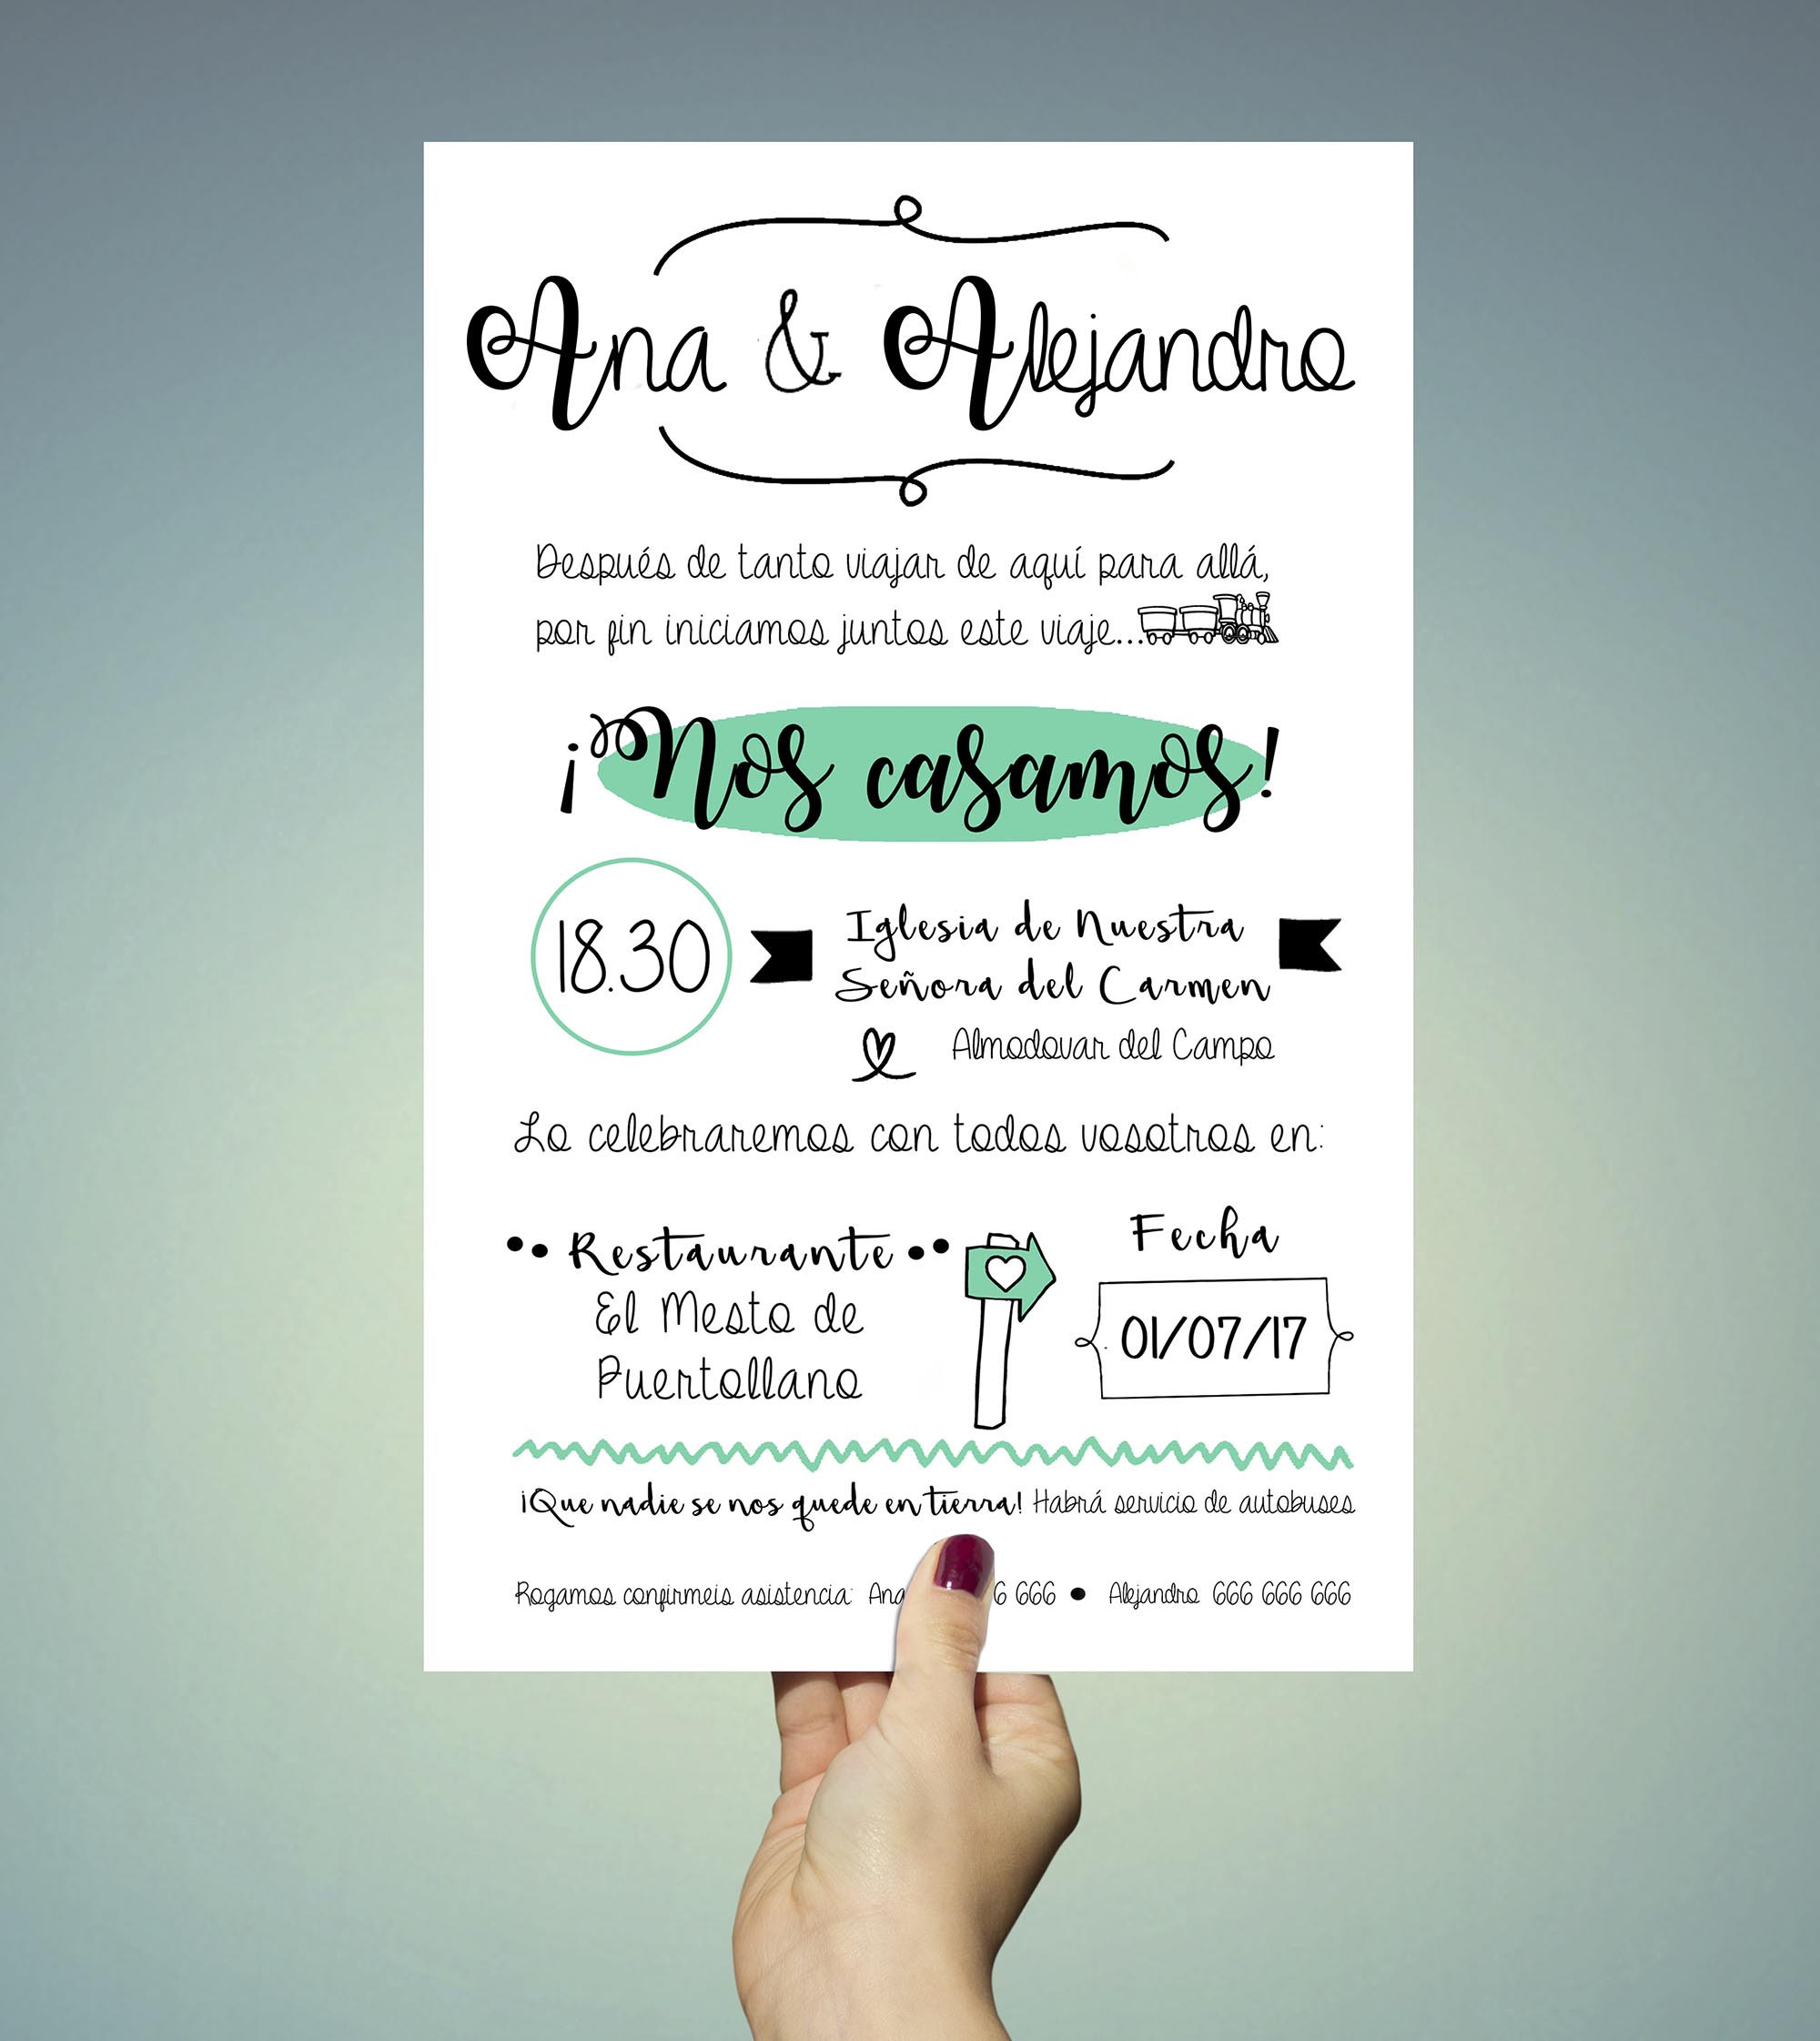 Ana & Alejandro
Después de tanto viajar de aquí para allá,
por fin iniciamos juntos este viaje...
¡Nos casamos!
18.30
Iglesia de Nuestra
Señora del Carmen
Almodovar del Campo
Lo celebraremos con todos vosotros en:
Restaurante
El Mesto de
Puertollano
Fecha
01/07/17
¡Que nadie se nos quede en tierra! Habrá servicio de autobuses
Rogamos confirmeis asistencia: Ana 666 • Alejandro 666 666 666